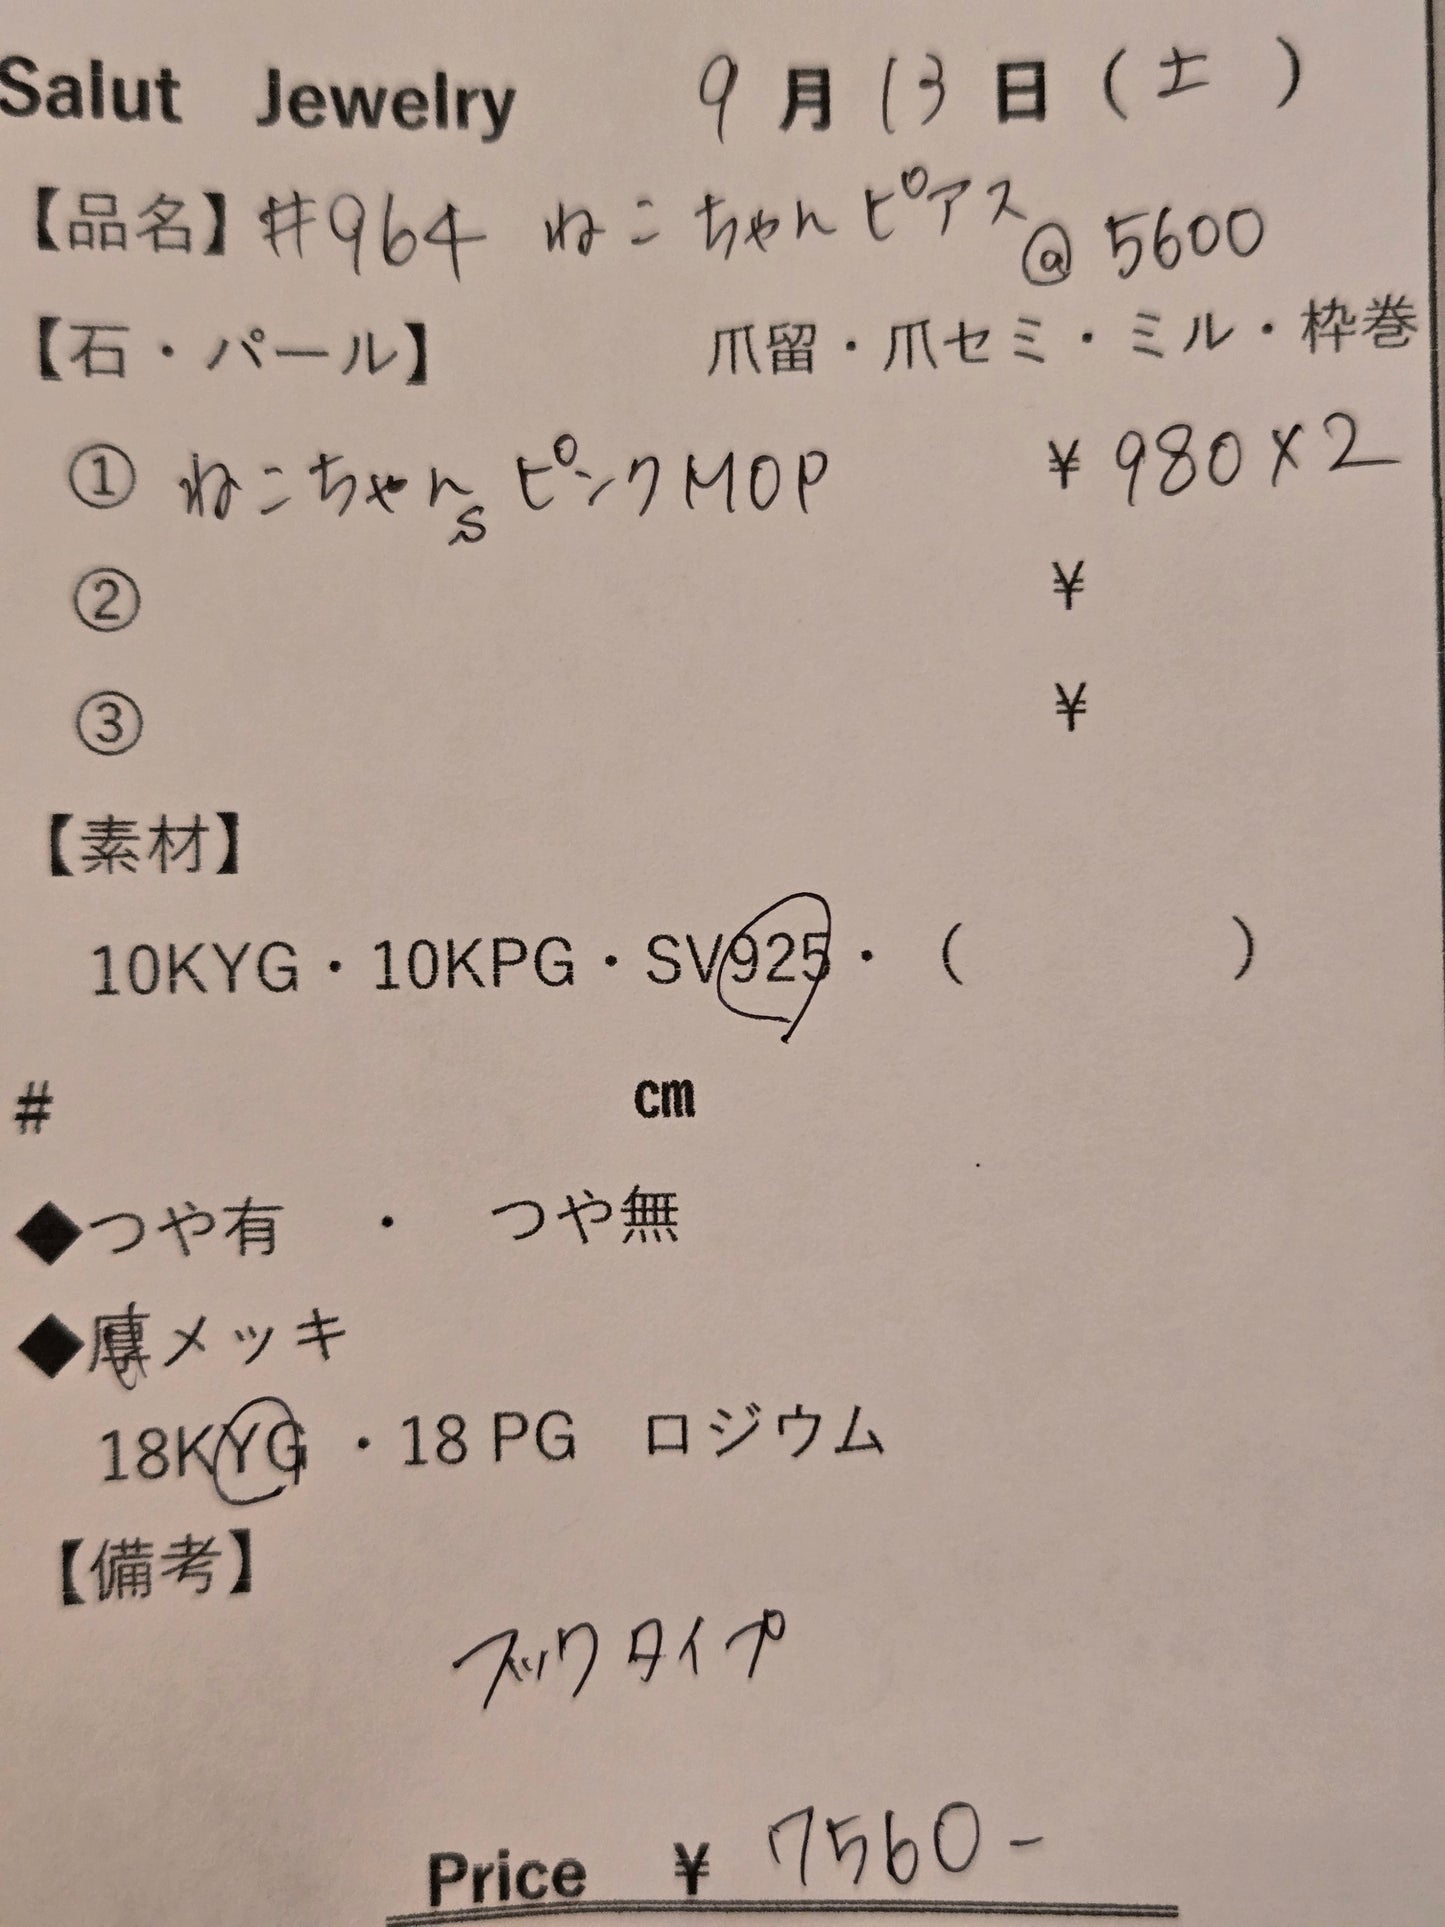 Salut Jewelry 9月13日(土)
【品名】#964 ねこちゃんピアス @5600
【石・パール】 爪留・爪セミ・ミル・枠巻
① ねこちゃんs ピンクMOP ¥980×2
② ¥
③ ¥
【素材】
10KYG・10KPG・SV925・( )
# cm
◆つや有 ・ つや無
◆厚メッキ
18KYG ・18 PG ロジウム
【備考】
フックタイプ
Price ¥ 7560-